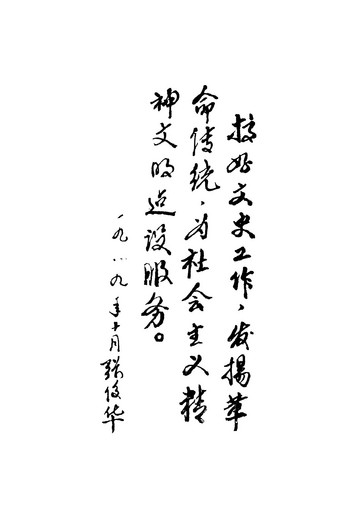 搞好文史工作，发揚革
命传统，为社会主义精
神文明建设服务。
一九八九年十月 张俊华